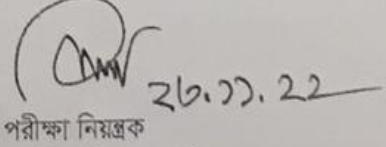 ২৮.১১.২২
পরীক্ষা নিয়ন্ত্রক